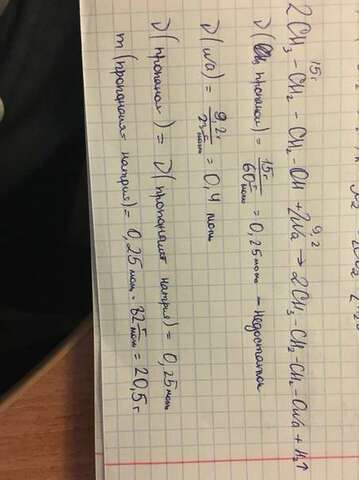 15г 9,2
2CH₃-CH₂-CH₂-OH + 2Na → 2CH₃-CH₂-CH₂-ONa + H₂↑
ν(пропанол) = 15г / 60 г/моль = 0,25 моль - недостаток
ν(Na) = 9,2г / 23 г/моль = 0,4 моль
ν(пропанол) = ν(пропаноят натрия) = 0,25 моль
m(пропаноят натрия) = 0,25 моль · 82 г/моль = 20,5 г